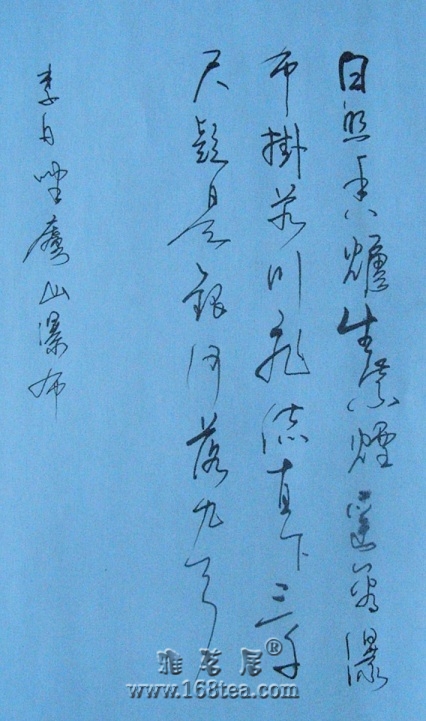 日照香爐生紫煙遙看瀑
布掛前川飛流直下三千
尺疑是銀河落九天
李白望廬山瀑布
雅茗居®
www.168tea.com